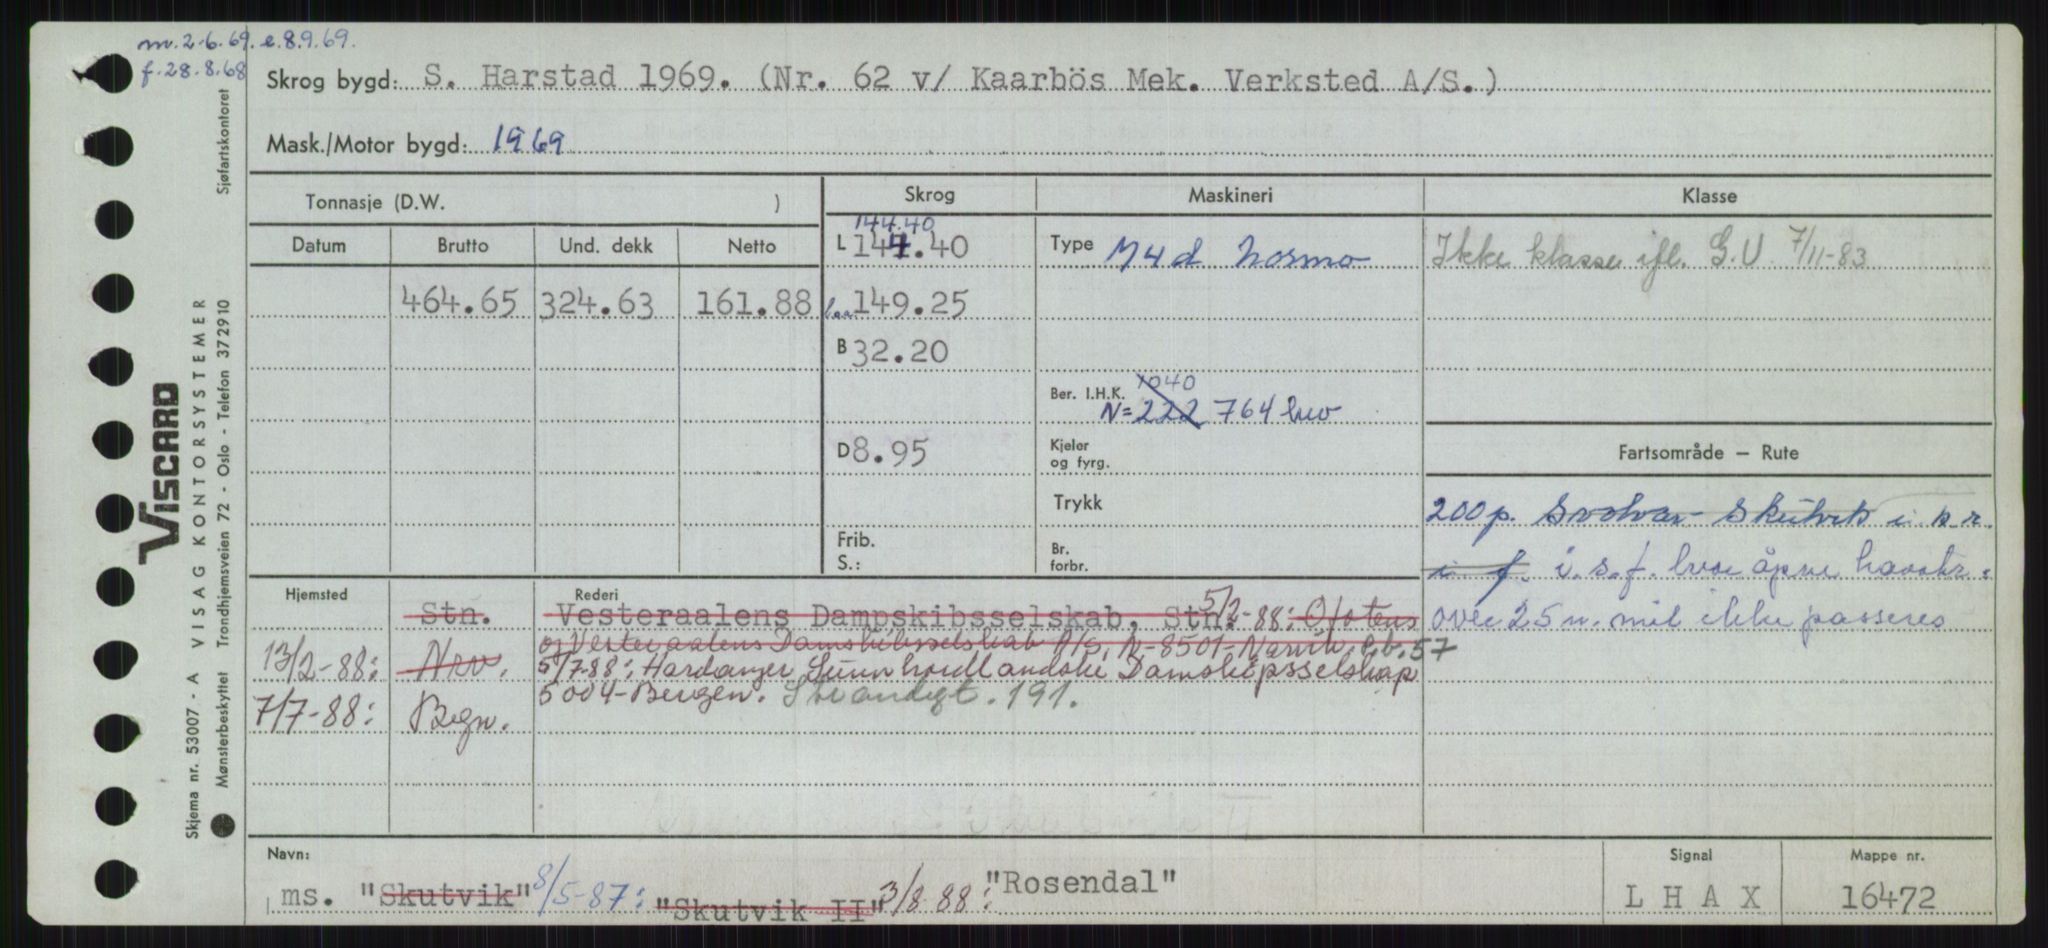 m. 2.6.69. e. 8.9.69.
f. 28.8.68
Skrog bygd: S. Harstad 1969. (Nr. 62 v/ Kaarbös Mek. Verksted A/S.)
Mask./Motor bygd: 1969
Tonnasje (D.W. )
Skrog
Maskineri
Klasse
Datum Brutto Und. dekk Netto
144.40
L 147.40
Type M4d Normo
Ikke klasse ifl. G.V. 7/11-83
464.65 324.63 161.88
l.a. 149.25
B 32.20
1040
Ber. I.H.K.
N= 222 764 bre
D 8.95
Kjeler og fyrg.
Trykk
Frib.
S.:
Br. forbr.
Fartsområde – Rute
200 p. Svolvær - Skutvik i n.r.
i f. i.s.f. hvor åpne havstr.
over 25 n. mil ikke passeres
Hjemsted
Rederi
Stn. Vesteraalens Dampskibsselskab, Stn. 5/2-88: Ofotens
og Vesteraalens Dampskibsselskab A/S, N-8501-Narvik. P.b. 57
13/2-88: Nrv. 5/7-88: Hardanger Sunnhordlandske Dampskipsselskap
5004-Bergen. Strandgt. 191.
7/7-88: Bgn.
Navn:
ms. "Skutvik" 8/5-87: "Skutvik II" 3/8 88: "Rosendal"
Signal
L H A X
Mappe nr.
16472
VISCARD
VISAG KONTORSYSTEMER
Skjema nr. 53007 - A
Mønsterbeskyttet Trondhjemsveien 72 - Oslo - Telefon 372910
Sjøfartskontoret